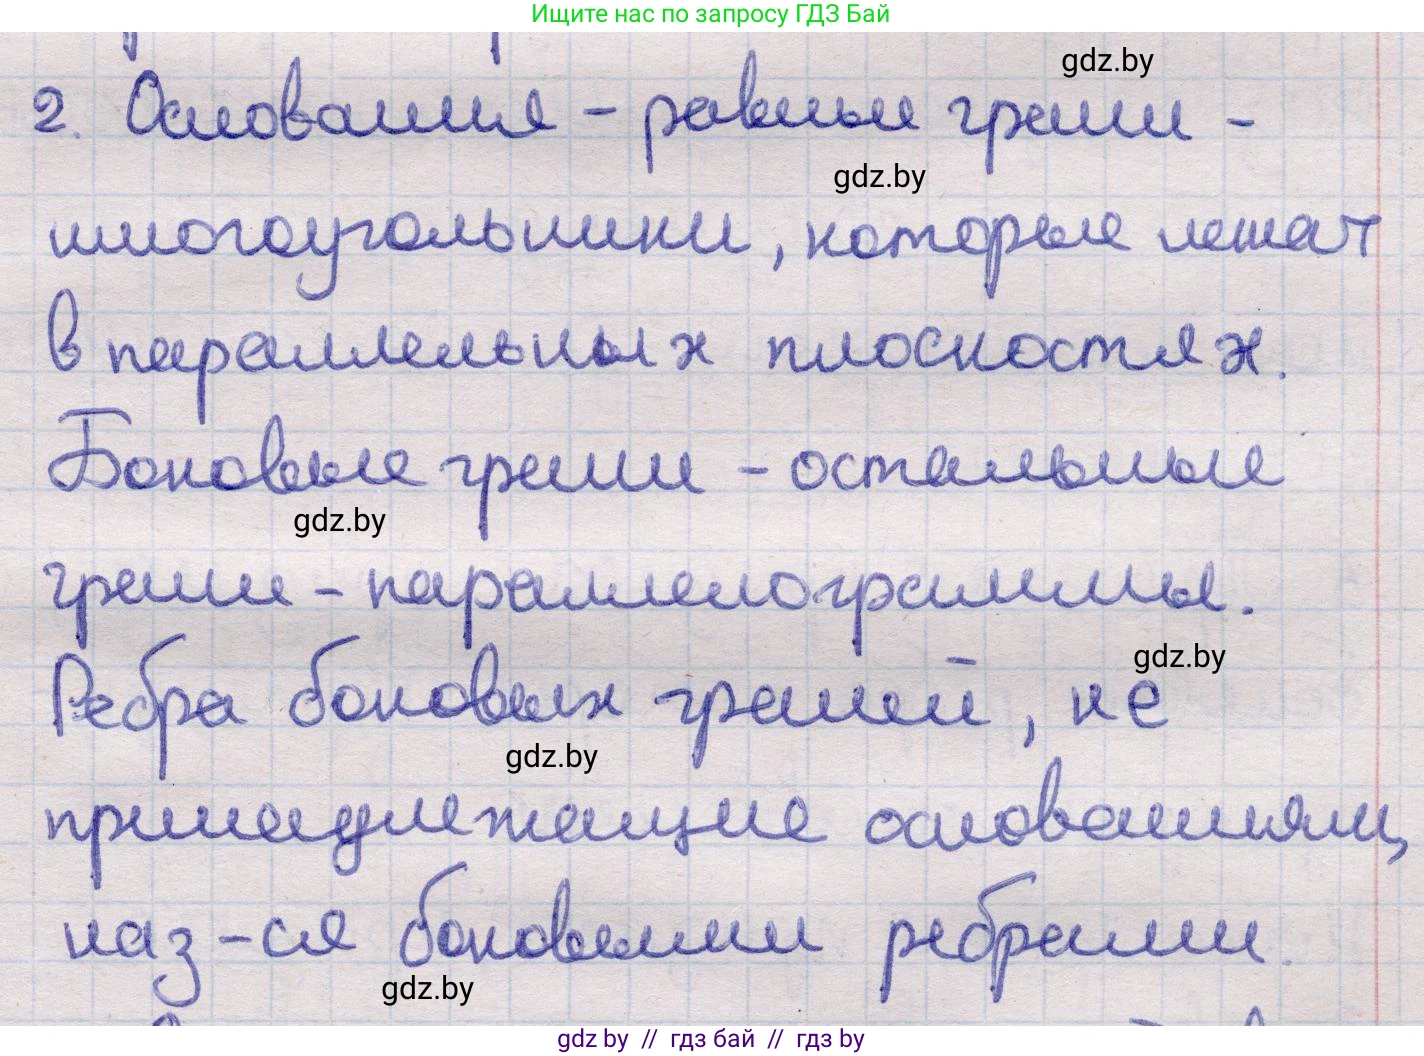 Ищите нас по запросу ГДЗ Бай
gdz.by
2. Основания - равные грани -
gdz.by
многоугольники, которые лежат
в параллельных плоскостях.
Боковые грани - остальные
gdz.by
грани - параллелограммы.
gdz.by
Ребра боковых граней, не
gdz.by
принадлежащие основаниям,
наз-ся боковыми ребрами.
gdz.by
gdz by // гдз бай // гдз by